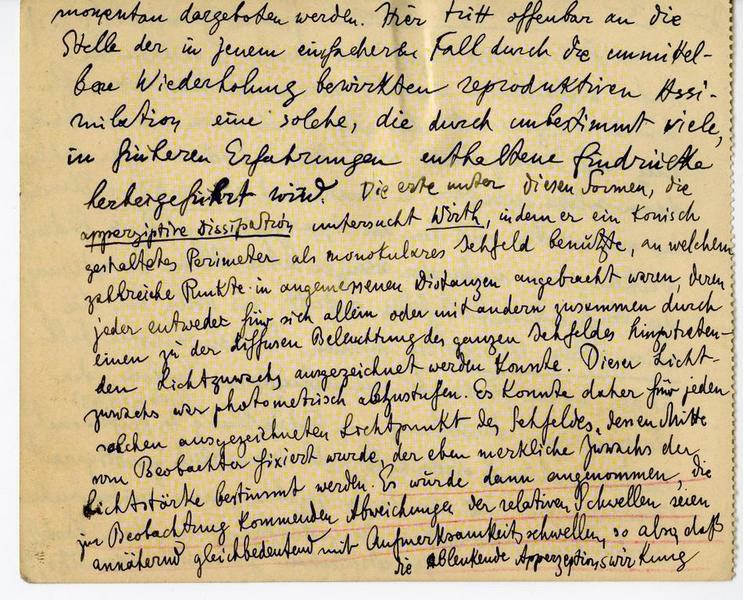 momentan dargeboten werden. Hier tritt offenbar an die
Stelle der in jenem einfacheren Fall durch die unmittel-
bare Wiederholung bewirkten reproduktiven Assi-
milation eine solche, die durch unbestimmt viele,
in früheren Erfahrungen enthaltene Eindrücke
herbeigeführt wird. Die erste unter diesen Formen, die
apperzeptive Dissipation untersucht Wirth, indem er ein konisch
gestaltetes Perimeter als monokulares Sehfeld benützte, an welchem
zahlreiche Punkte in angemessenen Distanzen angebracht waren, deren
jeder entweder für sich allein oder mit andern zusammen durch
einen zu der diffusen Beleuchtung des ganzen Sehfeldes hinzutreten-
den Lichtzuwachs ausgezeichnet werden konnte. Dieser Licht-
zuwachs war photometrisch abzustufen. Es konnte daher für jeden
solchen ausgezeichneten Lichtpunkt des Sehfeldes, dessen Mitte
vom Beobachter fixiert wurde, der eben merkliche Zuwachs der
Lichtstärke bestimmt werden. Es würde dann angenommen, die
zur Beobachtung kommenden Abweichungen der relativen Schwellen seien
annähernd gleichbedeutend mit Aufmerksamkeitsschwellen, so also, daß
die ablenkende Apperzeptionswirkung